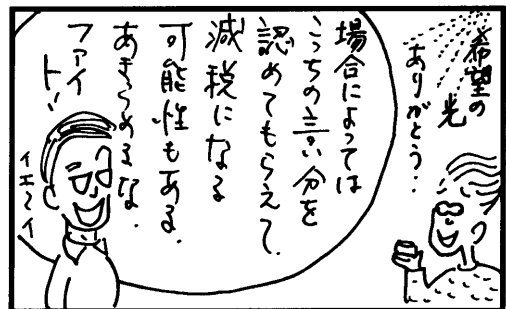 希望の
光
ありがとう・・
場合によっては
こっちの言い分を
認めてもらえて、
減税になる
可能性もある。
あきらめるな。
ファイ
トー
イエーイ